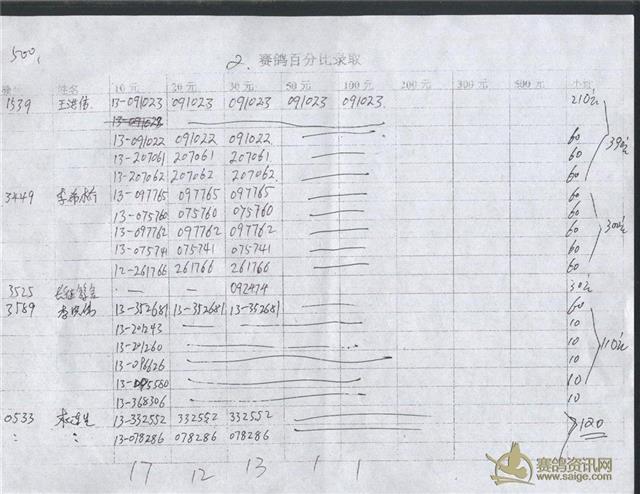 500,
2. 赛鸽百分比录取
姓名 10元 20元 30元 50元 100元 200元 300元 500元 小计
1539 王洪伟 13-091023 091023 091023 091023 091023 210元
13-091028
13-091022 091022 091022 60
13-207061 207061 207061 60 390元
13-207062 207062 207062 60
3449 13-097765 097765 097765 60
13-075760 075760 075760 60
13-097762 097762 097762 60 300元
13-075741 075741 075741 60
12-261766 261766 261766 60
3525 — — 092474 30元
3589 13-352681 13-352681 13-352681 60
13-201243 10
13-201260 10
13-096626 10 110元
13-095580 10
13-368306 10
0533 13-332552 332552 332552 120
〃 〃 13-078286 078286 078286
17 12 13 1 1
赛鸽资讯网
www.saige.com